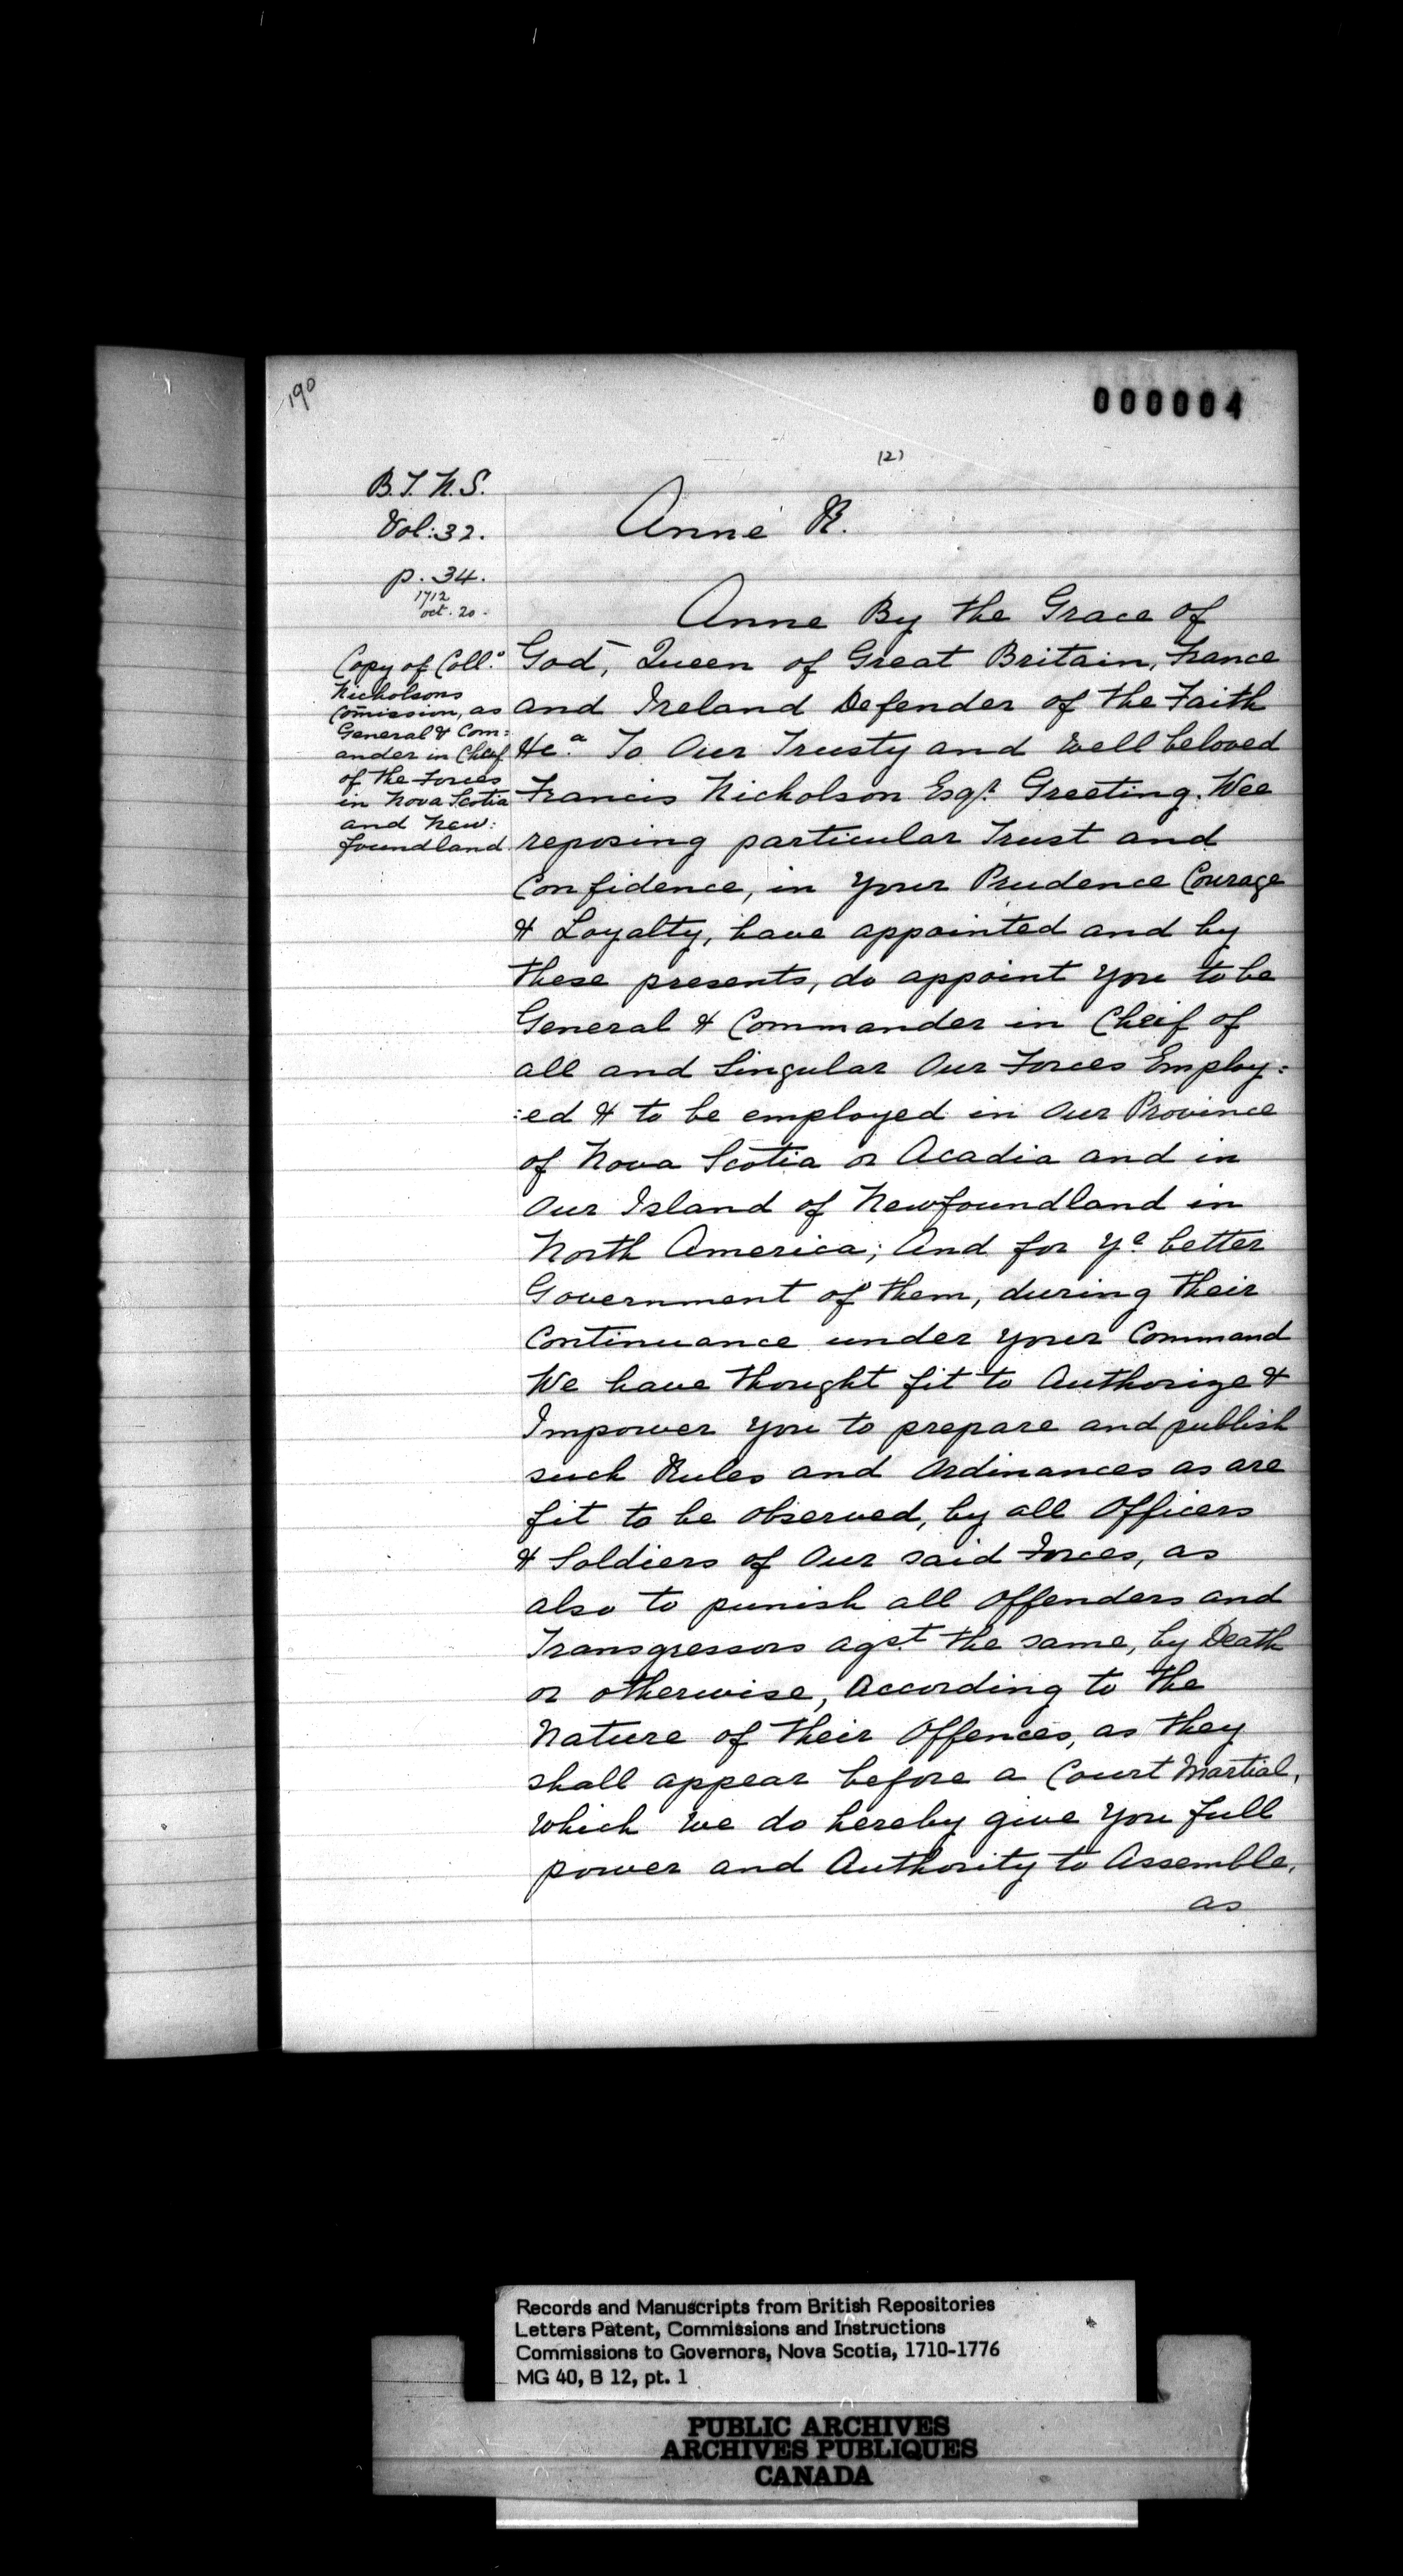 190
000004
(2)
B.T.N.S.
Vol: 32.
p. 34.
1712
oct. 20.
Copy of Coll.º
Nicholsons
Com̄ission, as
General & Com:
ander in Cheif
of the Forces
in Nova Scotia
and New:
foundland.
Anne R.
Anne By the Grace of
God, Queen of Great Britain, France
and Ireland Defender of the Faith
&c.a To Our Trusty and Well beloved
Francis Nicholson Esqr. Greeting. Wee
reposing particular Trust and
Confidence, in your Prudence Courage
& Loyalty, have appointed and by
these presents, do appoint you to be
General & Commander in Cheif of
all and Singular Our Forces Employ:
:ed & to be employed in Our Province
of Nova Scotia or Acadia and in
Our Island of Newfoundland in
North America; And for ye better
Government of them, during their
Continuance under your Command
We have thought fit to Authorize &
Impower you to prepare and publish
such Rules and Ordinances as are
fit to be observed, by all Officers
& Soldiers of Our said Forces, as
also to punish all Offenders and
Transgressors agst the same, by Death
or otherwise, According to the
Nature of their Offences, as they
shall appear before a Court Martial,
which we do hereby give you full
power and Authority to Assemble,
as
Records and Manuscripts from British Repositories
Letters Patent, Commissions and Instructions
Commissions to Governors, Nova Scotia, 1710-1776
MG 40, B 12, pt. 1
PUBLIC ARCHIVES
ARCHIVES PUBLIQUES
CANADA